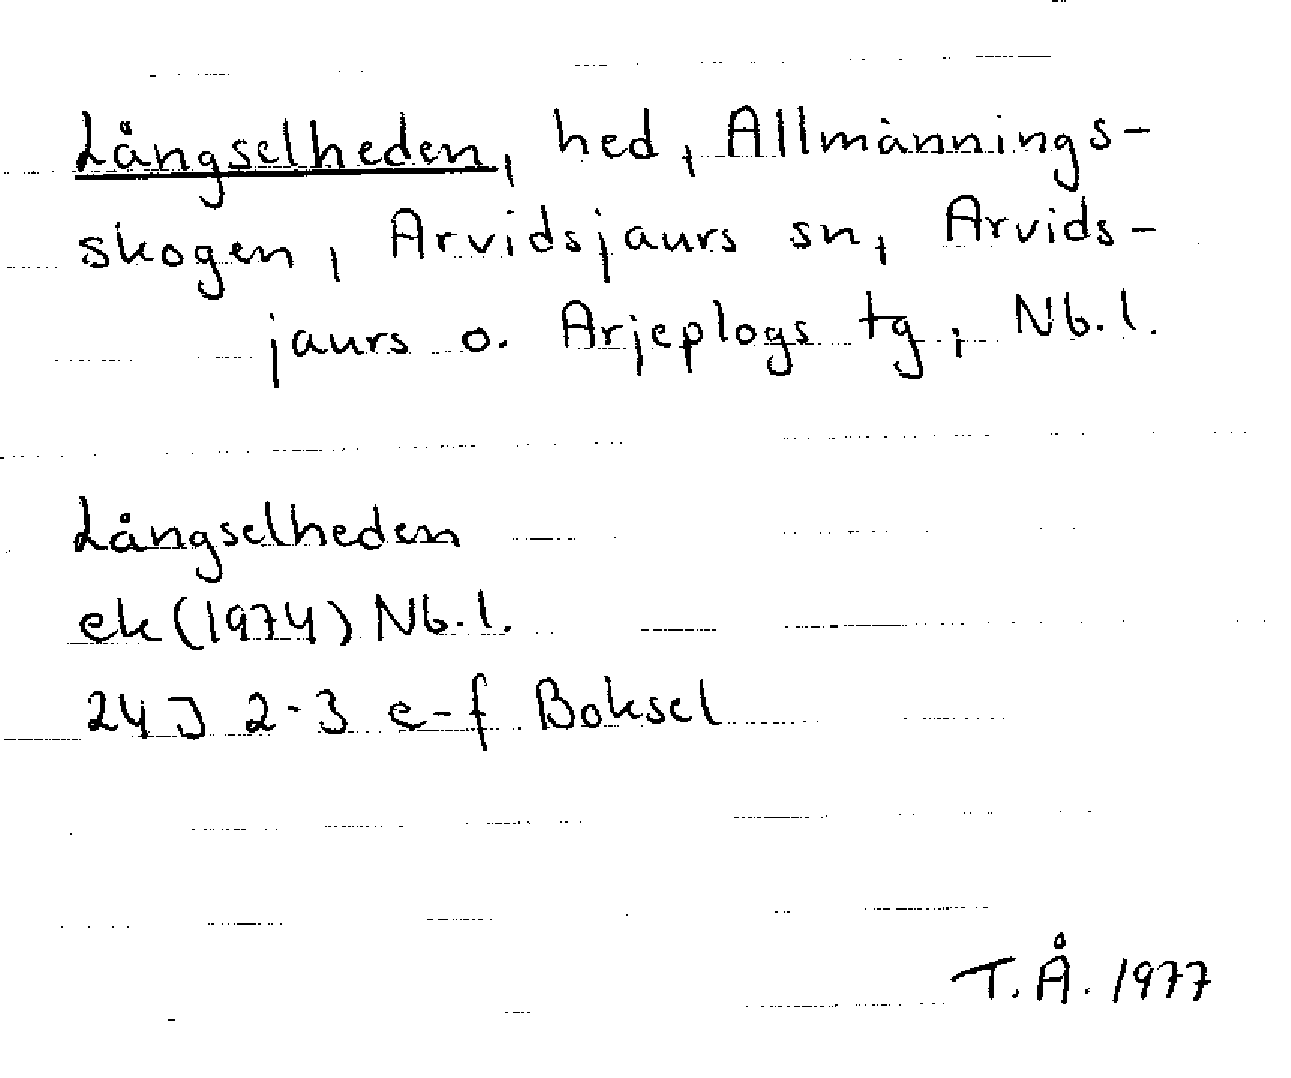 Långselheden, hed, Allmännings-
skogen, Arvidsjaurs sn, Arvids-
jaurs o. Arjeplogs tg, Nb.l.
Långselheden
ek (1974) Nb.l.
24J 2-3 e-f Boksel
T.Å. 1977